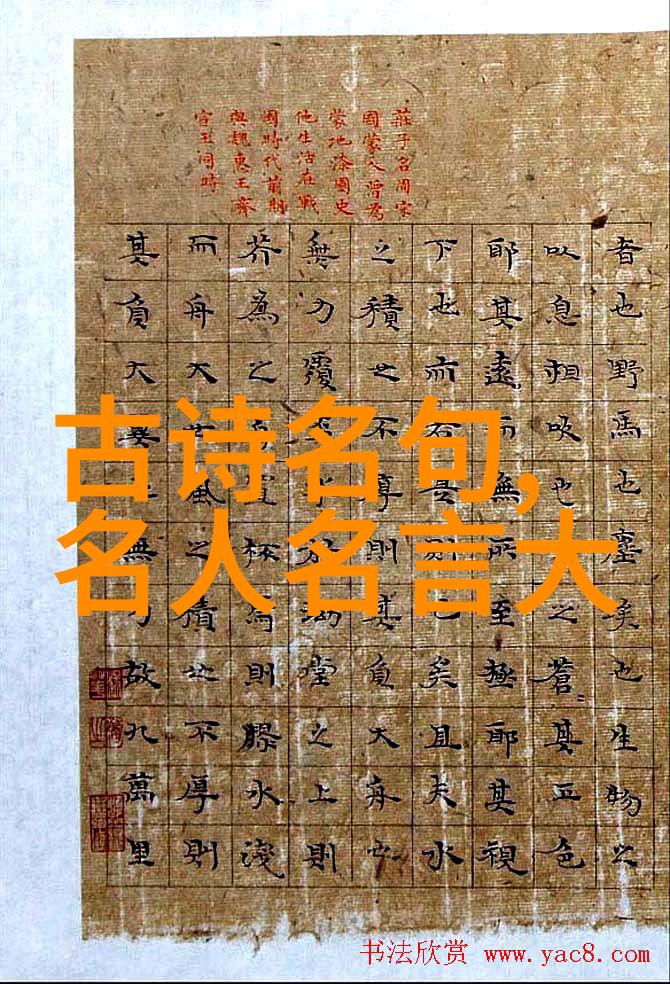 莊子名周宋
國蒙人曾為
蒙地漆園史
他生活在戰
國時代前期
與魏惠王齊
宣王同時
者也野馬也塵矣也生物之
以息相吹也之蒼〻其正色
耶其遠而無所至極耶其視
下也而若是則已矣且夫水
之積也不厚則其負大舟也
無力覆杯水於坳堂之上則
芥為之舟置杯焉則膠水淺
而舟大也風之積也不厚則
其負大翼也無力故九萬里
古诗名句,
名人名言大
书法欣赏 www.yac8.com